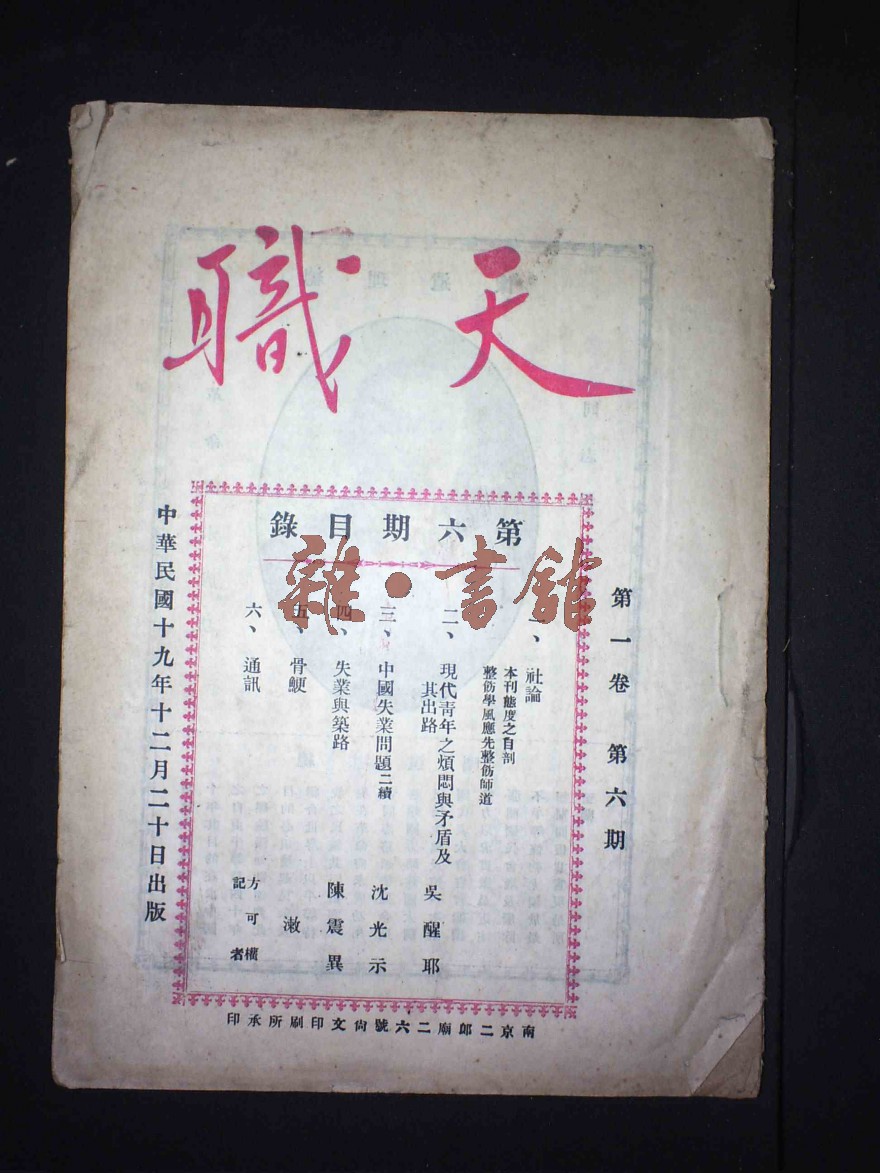 天職
第一卷 第六期
第六期目錄
一、社論
本刊態度之自剖
整飭學風應先整飭師道
二、現代靑年之煩悶與矛盾及
其出路
吳醒耶
三、中國失業問題二續
沈光示
四、失業與築路
陳震異
五、骨鯁
漱
六、通訊
方可權
記者
中華民國十九年十二月二十日出版
南京二郎廟二六號尙文印刷所承印
雜·書館